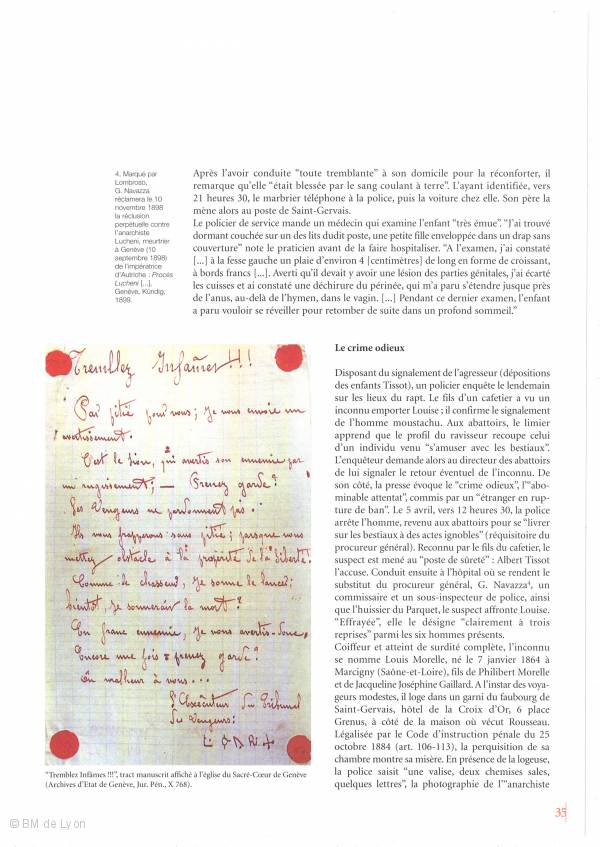 4. Marqué par
Lombroso,
G. Navazza
réclamera le 10
novembre 1898
la réclusion
perpétuelle contre
l'anarchiste
Lucheni, meurtrier
à Genève (10
septembre 1898)
de l'impératrice
d'Autriche : Procès
Lucheni [...],
Genève, Kündig,
1899.
Après l'avoir conduite “toute tremblante” à son domicile pour la réconforter, il
remarque qu'elle “était blessée par le sang coulant à terre”. L'ayant identifiée, vers
21 heures 30, le marbrier téléphone à la police, puis la voiture chez elle. Son père la
mène alors au poste de Saint-Gervais.
Le policier de service mande un médecin qui examine l'enfant “très émue”. “J'ai trouvé
dormant couchée sur un des lits dudit poste, une petite fille enveloppée dans un drap sans
couverture” note le praticien avant de la faire hospitaliser. “A l'examen, j'ai constaté
[...] à la fesse gauche un plaie d'environ 4 [centimètres] de long en forme de croissant,
à bords francs [...]. Averti qu'il devait y avoir une lésion des parties génitales, j'ai écarté
les cuisses et ai constaté une déchirure du périnée, qui m'a paru s'étendre jusque près
de l'anus, au-delà de l'hymen, dans le vagin. [...] Pendant ce dernier examen, l'enfant
a paru vouloir se réveiller pour retomber de suite dans un profond sommeil.”
Tremblez Infâmes !!!
Par pitié pour vous ; je vous envoie un
avertissement.
C'est le lion, qui avertis son ennemie par
un rugissement ; — Prenez garde ?
Les Vengeurs ne pardonnent pas..
Ils vous frapperons sans pitié ; parsque vous
mettez obstacle à la properité de la liberté !
Comme le chasseur, je sonne le lancé ;
bientôt, je sonnerais la mort ?
En franc ennemie, je vous avertis-donc,
Encore une fois prenez garde ?
Ou malheur à vous...
L'Exécuteur du Tribunal
des Vengeurs :
“Tremblez Infâmes !!!”, tract manuscrit affiché à l'église du Sacré-Cœur de Genève
(Archives d'Etat de Genève, Jur. Pén., X 768).
Le crime odieux
Disposant du signalement de l'agresseur (dépositions
des enfants Tissot), un policier enquête le lendemain
sur les lieux du rapt. Le fils d'un cafetier a vu un
inconnu emporter Louise ; il confirme le signalement
de l'homme moustachu. Aux abattoirs, le limier
apprend que le profil du ravisseur recoupe celui
d'un individu venu “s'amuser avec les bestiaux”.
L'enquêteur demande alors au directeur des abattoirs
de lui signaler le retour éventuel de l'inconnu. De
son côté, la presse évoque le “crime odieux”, l'“abo-
minable attentat”, commis par un “étranger en rup-
ture de ban”. Le 5 avril, vers 12 heures 30, la police
arrête l'homme, revenu aux abattoirs pour se “livrer
sur les bestiaux à des actes ignobles” (réquisitoire du
procureur général). Reconnu par le fils du cafetier, le
suspect est mené au “poste de sûreté” : Albert Tissot
l'accuse. Conduit ensuite à l'hôpital où se rendent le
substitut du procureur général, G. Navazza⁴, un
commissaire et un sous-inspecteur de police, ainsi
que l'huissier du Parquet, le suspect affronte Louise.
“Effrayée”, elle le désigne “clairement à trois
reprises” parmi les six hommes présents.
Coiffeur et atteint de surdité complète, l'inconnu
se nomme Louis Morelle, né le 7 janvier 1864 à
Marcigny (Saône-et-Loire), fils de Philibert Morelle
et de Jacqueline Joséphine Gaillard. A l'instar des voya-
geurs modestes, il loge dans un garni du faubourg de
Saint-Gervais, hôtel de la Croix d'Or, 6 place
Grenus, à côté de la maison où vécut Rousseau.
Légalisée par le Code d'instruction pénale du 25
octobre 1884 (art. 106-113), la perquisition de sa
chambre montre sa misère. En présence de la logeuse,
la police saisit “une valise, deux chemises sales,
quelques lettres”, la photographie de l'“anarchiste
35
© BM de Lyon